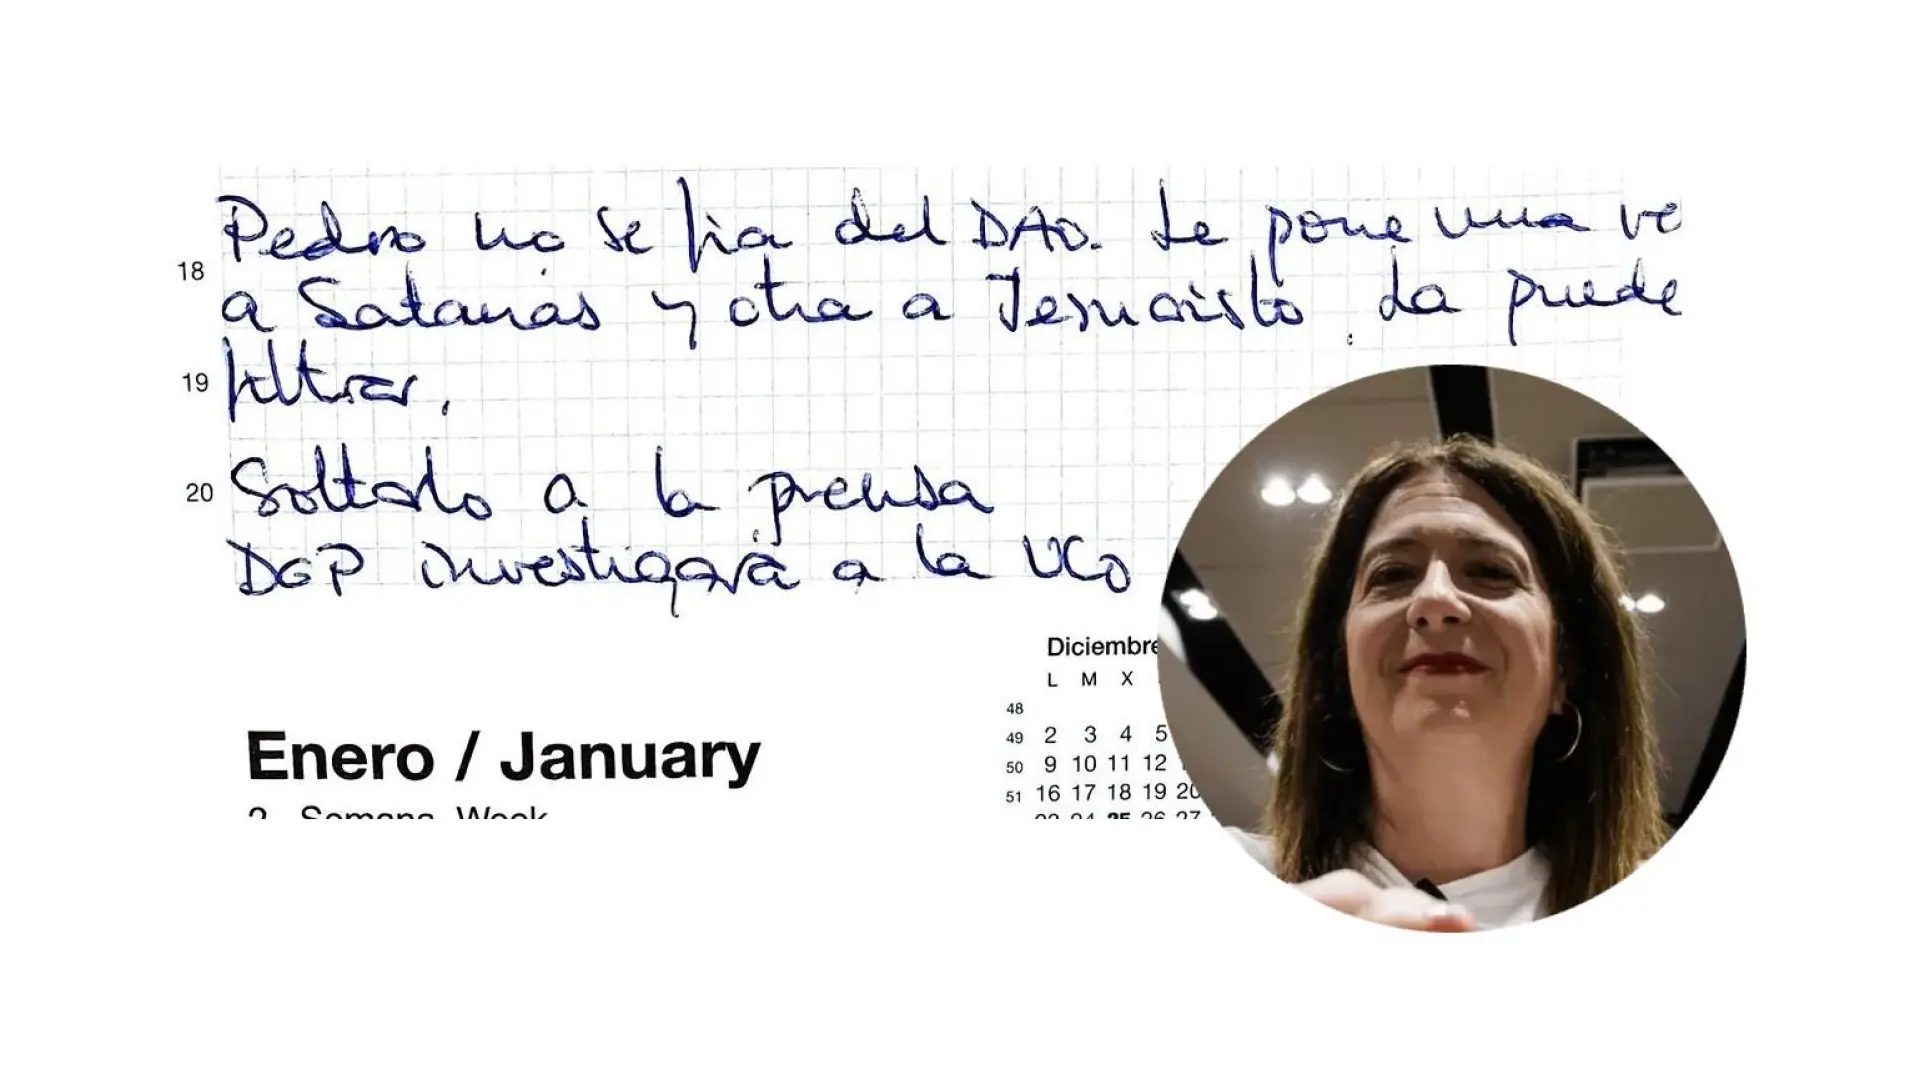 Pedro no se fia del DAO. Le pone una ve
18
a Satanás y otra a Jesucristo. La puede
19
filtrar.
20
Soltarlo a la prensa
DGP investigará a la UCO
Diciembre
L M X
48
Enero / January
49 2 3 4 5
50 9 10 11 12
51 16 17 18 19 20
2 Semana Week
23 24 25 26 27